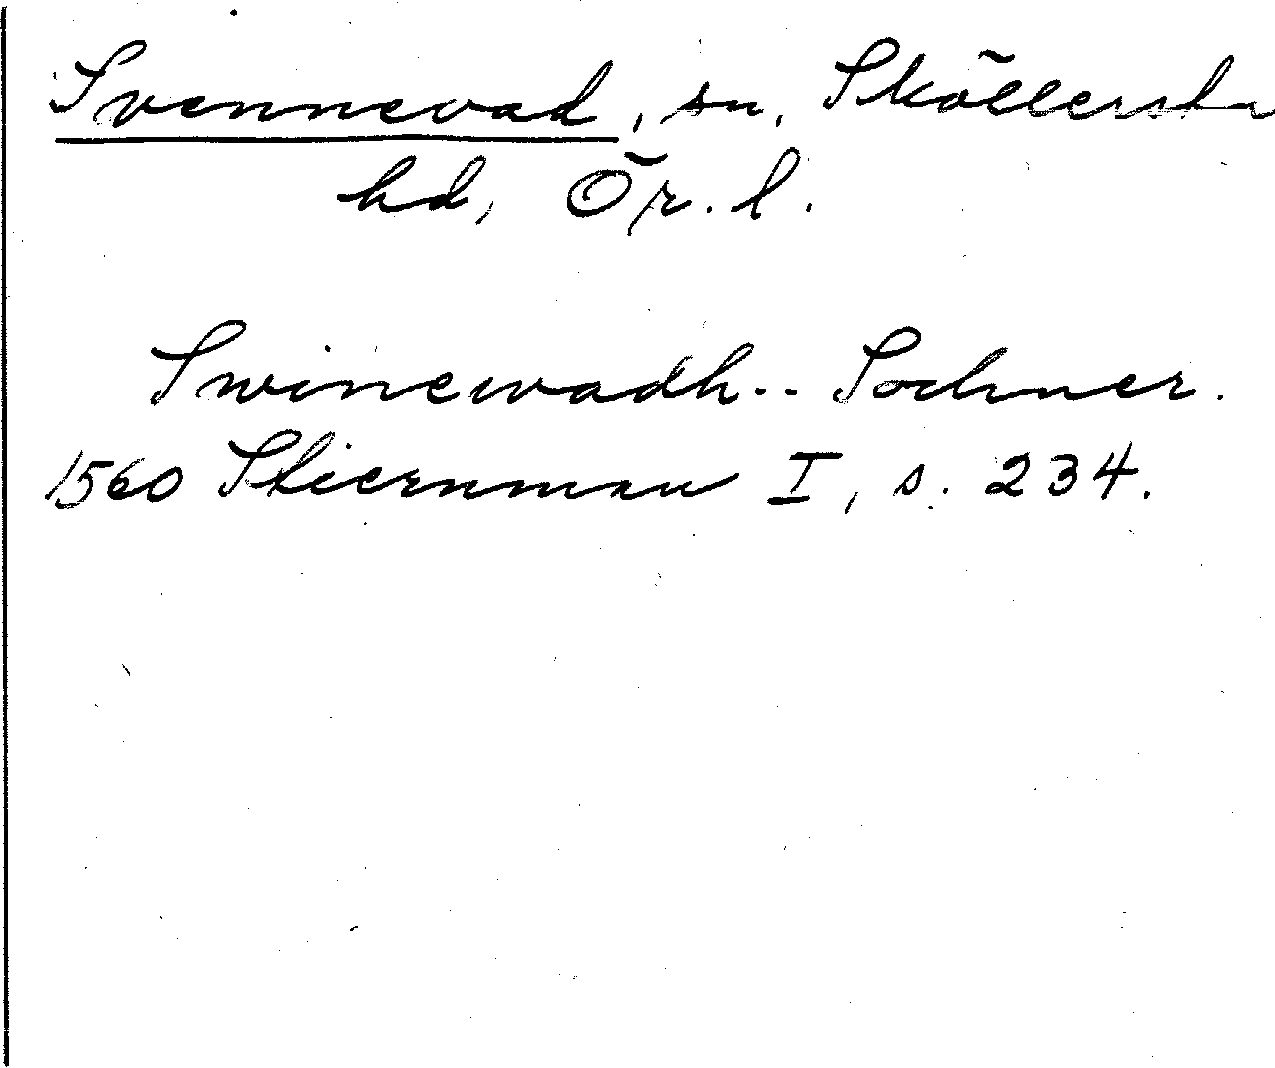 Svennevad, sn, Sköllersta
hd, Ör. l.
Swinewadh.. Sochner.
1560 Stiernman I, s. 234.